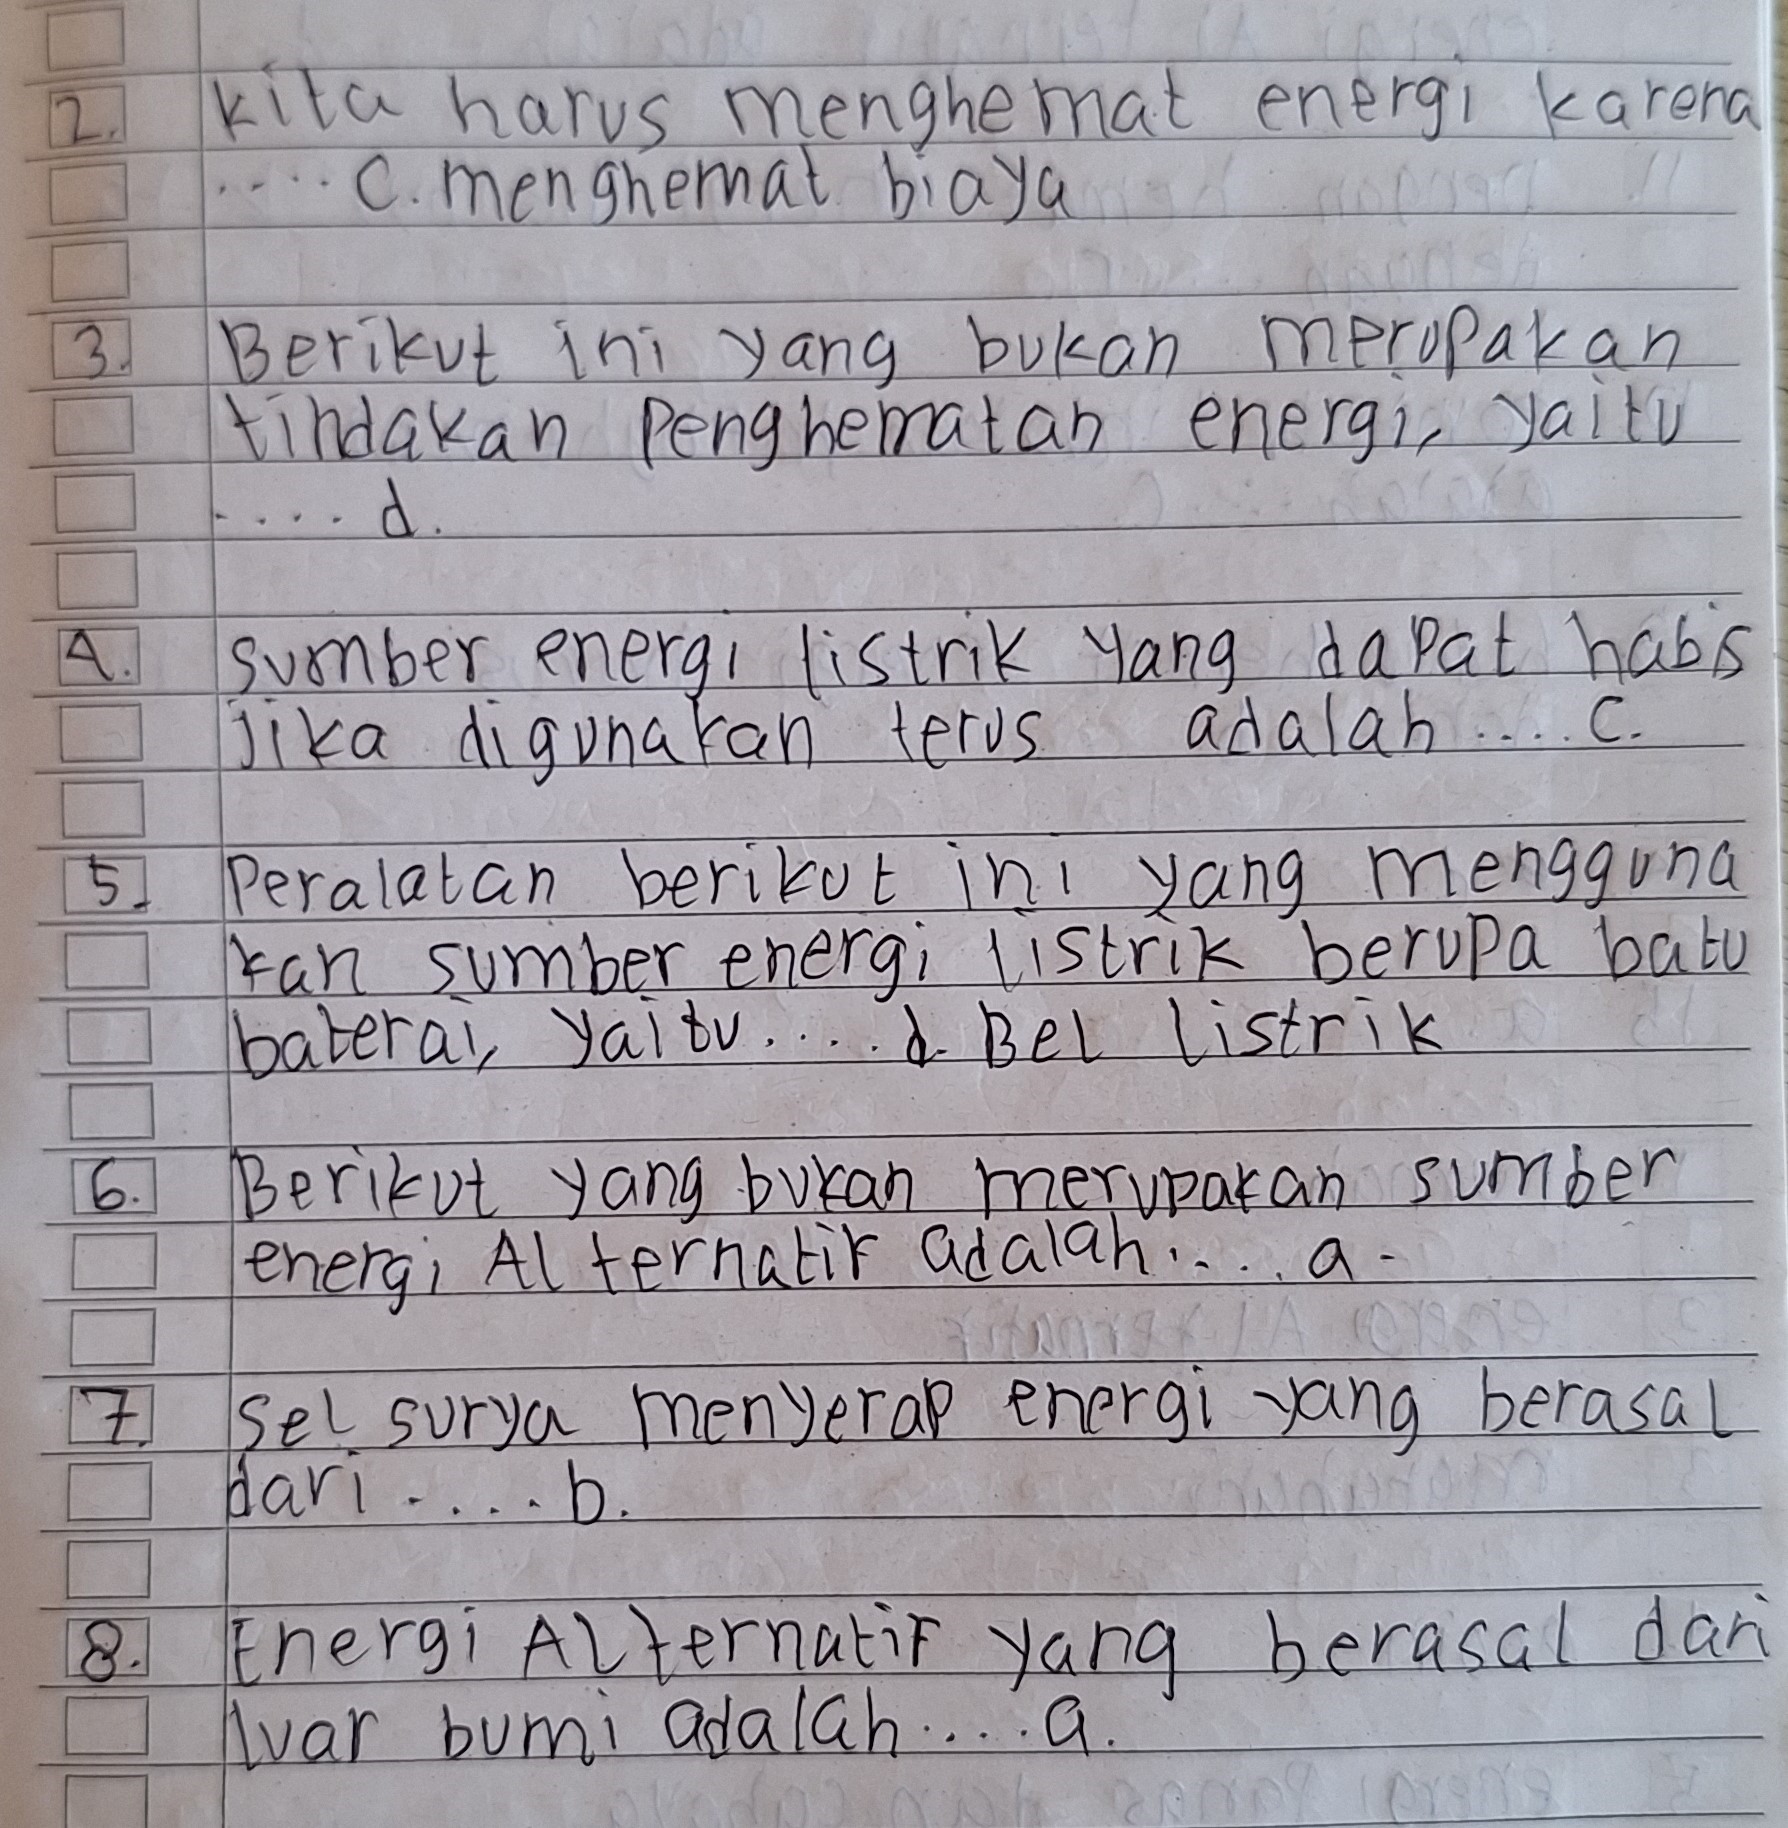 2. kita harus menghemat energi karena
.... c. menghemat biaya
3. Berikut ini yang bukan merupakan
tindakan penghematan energi, yaitu
.... d.
4. sumber energi listrik yang dapat habis
jika digunakan terus adalah .... c.
5. Peralatan berikut ini yang mengguna
kan sumber energi listrik berupa batu
baterai, yaitu .... d. Bel listrik
6. Berikut yang bukan merupakan sumber
energi Alternatif adalah .... a.
7. sel surya menyerap energi yang berasal
dari .... b.
8. Energi Alternatif yang berasal dari
luar bumi adalah .... a.